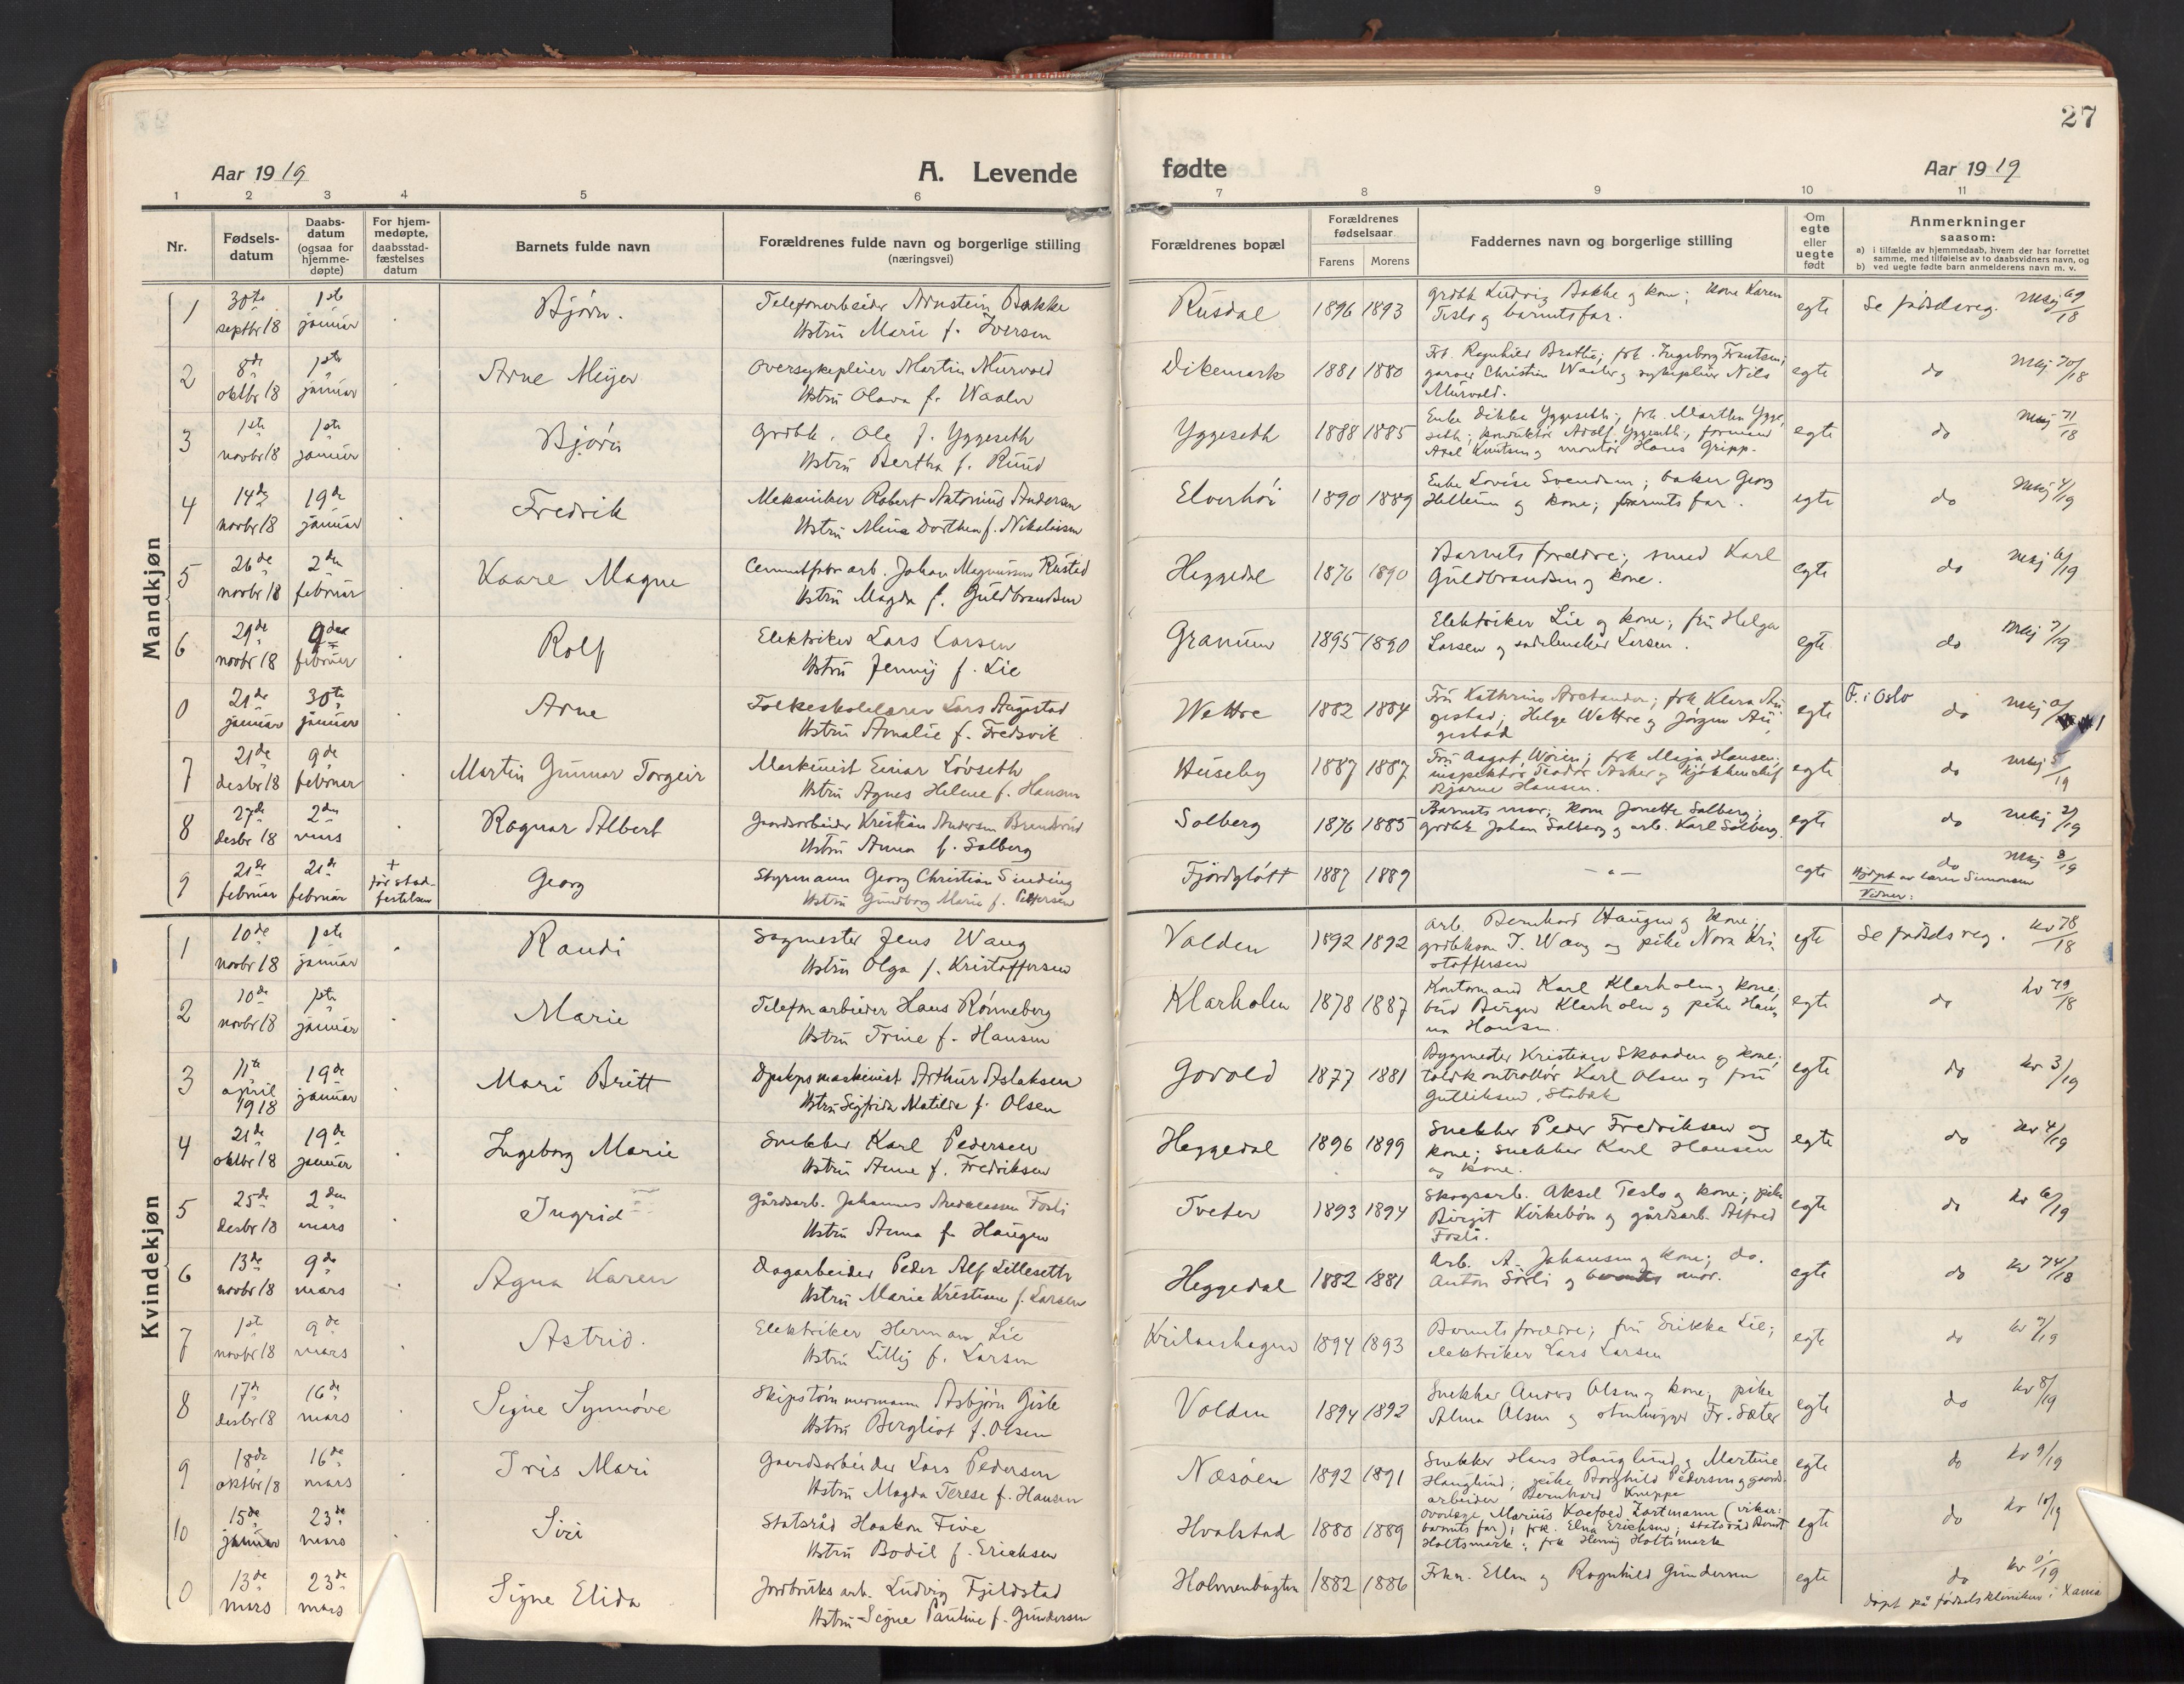 27
Aar 1919
A. Levende fødte
Aar 1919
1 2 3 4 5 6 7 8 9 10 11
Nr.
Fødsels-
datum
Daabs-
datum
(ogsaa for
hjemme-
døpte)
For hjem-
medøpte,
daabsstad-
fæstelses
datum
Barnets fulde navn
Forældrenes fulde navn og borgerlige stilling
(næringsvei)
Forældrenes bopæl
Forældrenes
fødselsaar
Farens Morens
Faddernes navn og borgerlige stilling
Om
egte
eller
uegte
født
Anmerkninger
saasom:
a) i tilfælde av hjemmedaab, hvem der har forrettet
samme, med tilføielse av to daabsvidners navn, og
b) ved uegte fødte barn anmelderens navn m. v.
Mandkjøn
1 30te septbr 18 1ste januar Bjørn. Telefonarbeider Arnstein Bakke
Hstru Marie f. Iversen
Rusdal 1896 1893 grdbk Ludvig Bakke og kone; kone Karen
Teslo og barnets far.
egte Se fødselsreg. Mkj 69/18
2 8de oktbr 18 1ste januar Arne Meyer Oversykepleier Martin Murvold
Hstru Olava f. Waaler
Dikemark 1881 1880 Frk. Ragnhild Brathe; frk. Ingeborg Frantsen;
garver Christian Waaler og sykepleier Nils
Murvold.
egte do Mkj 70/18
3 1ste novbr 18 1ste januar Bjørn Grdbk. Ole J. Yggeseth
Hstru Bertha f. Ruud
Yggeseth 1888 1885 Enke Dikka Yggeseth; frk. Marthea Ygge-
seth; konduktør Adolf Yggeseth; formand
Axel Knutsen og montør Hans Gripp.
egte do Mkj 71/18
4 14de novbr 18 19de januar Fredrik Mekaniker Robert Antonius Andersen
Hstru Mina Dorthea f. Nikolaisen
Elverhøi 1890 1889 Enke Lovise Svendsen; baker Georg
og kone; barnets far.
egte do Mkj 4/19
5 26de novbr 18 2den februar Kaare Magne Cementfabr. arb. Johan Magnussen Rustad
Hstru Magda f. Guldbrandsen
Heggedal 1876 1890 Barnets forældre; smed Karl
Guldbrandsen og kone.
egte do Mkj 6/19
6 29de novbr 18 9de februar Rolf Elektriker Lars Larsen
Hstru Jenny f. Lie
Granum 1895 1890 Elektriker Lie og kone; fru Helga
Larsen og sadelmaker Larsen.
egte do Mkj 7/19
0 21de januar 30te januar Arne Folkeskolelærer Lars Augestad
Hstru Amalie f. Fredsvik
Wettre 1882 1884 Fru Kathrine Arctander; frk Klara Au-
gestad; Helge Wettre og Jørgen Au-
gestad
egte F. i Oslo do Mkj
7 21de desbr 18 9de februar Martin Gunnar Torgeir Maskinist Einar Løvseth
Hstru Agnes Helene f. Hansen
Huseby 1887 1887 Fru Aagot Wøien; frk Maja Hansen;
inspektør Teodor Asker og kjøkkenchef
Bjarne Hansen.
egte do Mkj 5/19
8 27de desbr 18 2den mars Ragnar Albert Gaardsarbeider Kristian Andersen Brendsrud
Hstru Anna f. Solberg
Solberg 1876 1885 Barnets mor; kone Jonette Solberg;
grdbk Johan Solberg og arb. Karl Solberg.
egte do Mkj 2/19
9 21de februar 21de februar + før stad-
festelsen
Georg Styrmann Georg Christian Sinding
Hstru Gundborg Marie f. Pettersen
Fjordgløtt 1887 1889 - " - egte do Mkj 8/19
Hjdpt av lærer Simonsen
Vidner:
Kvindekjøn
1 10de novbr 18 1ste januar Randi Sagmester Jens Wang
Hstru Olga f. Kristoffersen
Valden 1892 1892 Arb. Bernhard Haugen og kone;
grdbksøn J. Wang og pike Nora Kri-
stoffersen
egte Se fødselsreg. Kv 78/18
2 10de novbr 18 1ste januar Marie Telefonarbeider Hans Rønneberg
Hstru Trine f. Hansen
Klarholm 1878 1887 Kontormand Karl Klarholm og kone;
bud Birger Klarholm og pike Han-
na Hansen.
egte do Kv 79/18
3 11te april 1918 19de januar Mari Britt Dpskps maskinist Arthur Aslaksen
Hstru Sigfrida Matilde f. Olsen
Govold 1877 1881 Bygmester Kristian Skaaden og kone;
toldkontrollør Karl Olsen og fru
Gulliksen, Stabæk
egte do Kv 3/19
4 21de oktbr 18 19de januar Ingeborg Marie Snekker Karl Pedersen
Hstru Anne f. Fredriksen
Heggedal 1896 1899 Snekker Peder Fredriksen og
kone; snekker Karl Hansen
og kone.
egte do Kv 4/19
5 25de desbr 18 2den mars Ingrid Gårdsarb. Johannes Andreassen Fosli
Hstru Anna f. Haugen
Tveter 1893 1894 Skogsarb. Aksel Teslo og kone; pike
Birgit Kirkebøn og gårdsarb. Alfred
Fosli.
egte do Kv 6/19
6 13de novbr 18 9de mars Agna Karen Dagarbeider Peder Alf Lilleseth
Hstru Marie Kristine f. Larsen
Heggedal 1882 1881 Arb. A. Johansen og kone; do.
Anton Sørli og barnets mor.
egte do Kv 74/18
7 1ste novbr 18 9de mars Astrid. Elektriker Herman Lie
Hstru Lilly f. Larsen
1894 1893 Barnets forældre; fru Erikka Lie;
elektriker Lars Larsen
egte do Kv 7/19
8 17de desbr 18 16de mars Signe Synnøve Skipstømmermann Asbjørn Giske
Hstru Bergliot f. Olsen
Volden 1894 1892 Snekker Anders Olsen og kone; pike
Alma Olsen og stenhugger Fr. Sæter
egte do Kv 8/19
9 18de oktbr 18 16de mars Iris Mari Gaardsarbeider Lars Pedersen
Hstru Magda Terese f. Hansen
Næsøen 1892 1891 Snekker Hans Hauglund og Martine
Hauglund; pike Borghild Pedersen og gaards-
arbeider Bernhard Knippe
egte do Kv 9/19
10 15de januar 23de mars Siri Statsråd Haakon Five
Hstru Bodil f. Ericksen
Hvalstad 1880 1889 Overlæge Marius Koefoed Zartmann (vikar:
barnets far); frk. Elna Ericksen; statsråd Bernt
Holtsmark; frk Henny Holtsmark
egte do Kv 10/19
0 13de mars 23de mars Signe Elida Jordbruks arb. Ludvig Fjeldstad
Hstru Signe Pauline f. Gundersen
Holmenbugten 1882 1886 Frkn. Ellen og Ragnhild Gundersen
egte do Kv 0/19
døpt på fødselskliniken i Xania